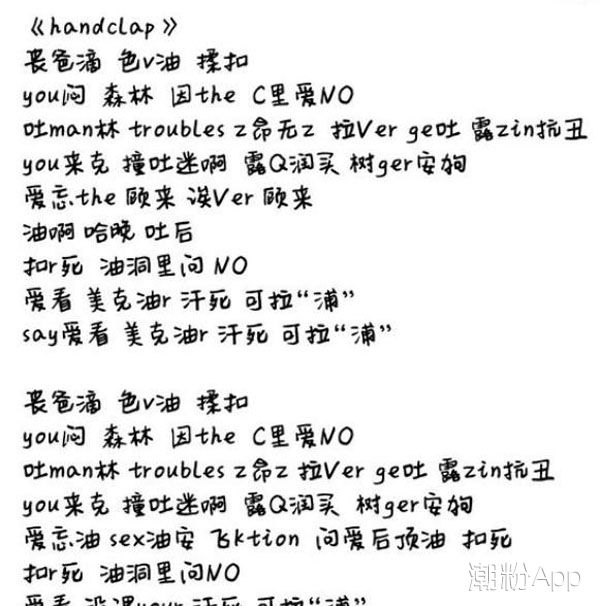 《handclap》
丧爸滴 色v油 揉扣
you闷 森林 因the C里爱NO
吐man林 troubles z昂无z 拉Ver ge吐 露zin抗丑
you来克 撞吐迷啊 露Q润买 树ger安狗
爱忘the 顾来 诶Ver 顾来
油啊 哈晚 吐后
扣r死 油洞里问 NO
爱看 美克油r 汗死 可拉“浦”
say爱看 美克油r 汗死 可拉“浦”
丧爸滴 色v油 揉扣
you闷 森林 因the C里爱NO
吐man林 troubles z昂z 拉Ver ge吐 露zin抗丑
you来克 撞吐迷啊 露Q润买 树ger安狗
爱忘油 sex油安 飞ktion 问爱后顶油 扣死
扣r死 油洞里问NO
爱看 没课your 汗死 可拉“浦”
潮粉App